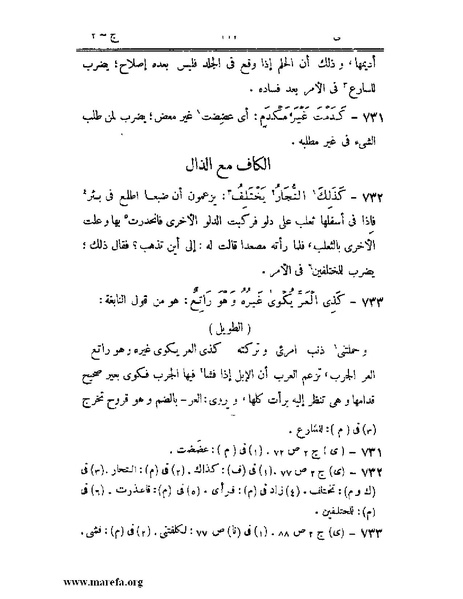 ج - ٢ ٢١٢ ى
أديمها، و ذلك أن الحلم إذا وقع فى الجلد فليس بعده إصلاح؛ يضرب
للسارع٣ فى الأمر بعد فساده .
٧٣١ - كَدَمْتَ غَيْرَ مَكْدَمٍ: أى عضِضت١ غير معض؛ يضرب لمن طلب
الشىء فى غير مطلبه .
الكاف مع الذال
٧٣٢ - كَذٰلِكَ١ النُّجَارُ٢ يَخْتَلِفُ٣: يزعمون أن ضبعا اطلع فى بئر٤
فإذا فى أسفلها ثعلب على دلو فركبت الدلو الأخرى فانحدرت٥ بها وعلت
الأخرى بالثعلب، فلما رأته مصعدا قالت له: إلى أين تذهب؟ فقال ذلك؛
يضرب للختلفين٦ فى الأمر .
٧٣٣ - كَذِى الْعَرِّ يُكْوىٰ غَيْرُهُ وَ هْوَ رَاتِعٌ: هو من قول النابغة:
( الطويل )
و حملتنى١ ذنب امرئى و تركته كذى العر يكوى غيره و هو راتع
العر الجرب، تزعم العرب أن الإبل إذا فشا٢ فيها الجرب فكوى بعير صحيح
قدامها و هى تنظر إليه برأت كلها، و يروى: العر - بالضم و هو قروح تخرج
(٣) فى ( م ): للشارع .
٧٣١ - (ى) ج ٢ ص ٧٢ . (١) فى ( م ): عضّضت .
٧٣٢ - (ى) ج ٢ ص ٧٧ . (١) فى (ف): كذاك . (٢) فى (م): التحار . (٣) فى
(ك و م): تختلف . (٤) زاد فى (م): فرأى . (٥) فى (م): فاغدرت . (٦) فى
(م): للختلفين .
٧٣٣ - (ى) ج ٢ ص ٨٨ . (١) فى (نا) ص ٧٧: لكلفتنى . (٢) فى (م): فشى .
www.marefa.org